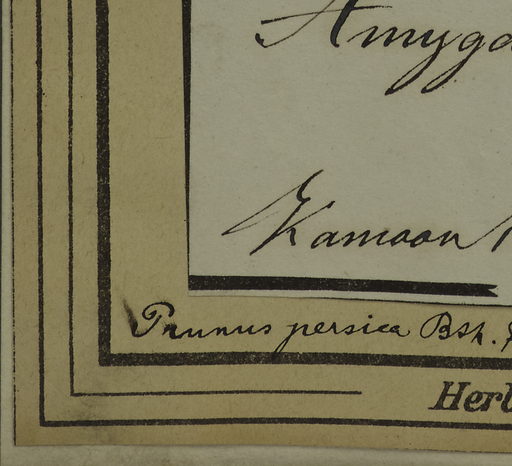 Amyga
Kamaon
Prunus persica Bsh.
Herb